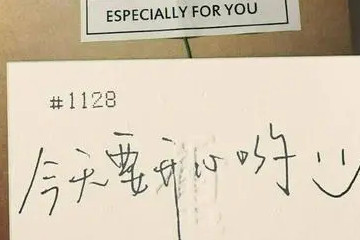 ESPECIALLY FOR YOU
#1128
今天要开心哟